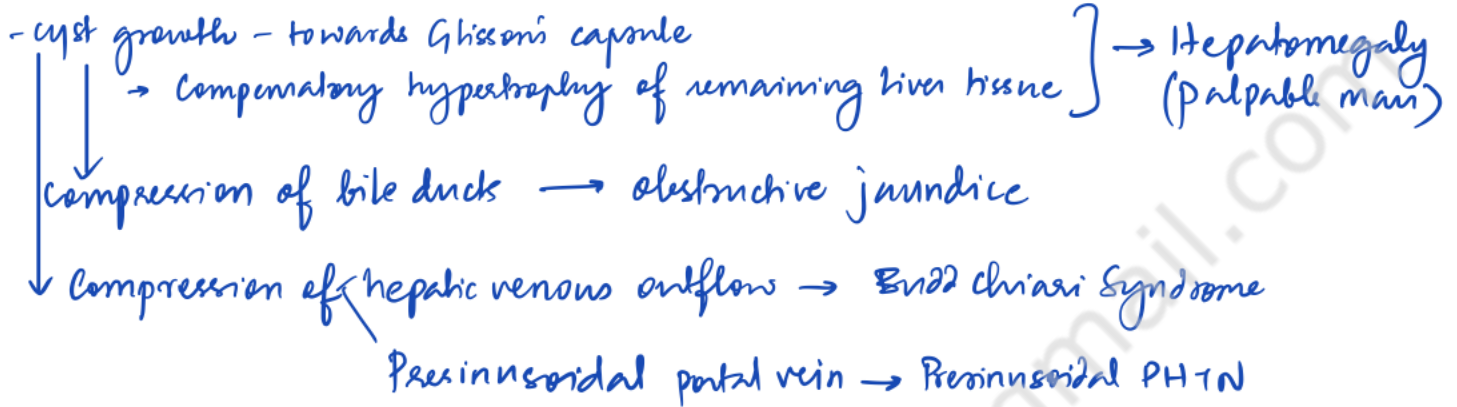 - cyst growth - towards Glisson's capsule
→ Compensatory hypertrophy of remaining liver tissue } → Hepatomegaly
(palpable mass)
Compression of bile ducts → obstructive jaundice
Compression of hepatic venous outflow → Budd Chiari Syndrome
Presinusoidal portal vein → Presinusoidal PHTN
mail.com